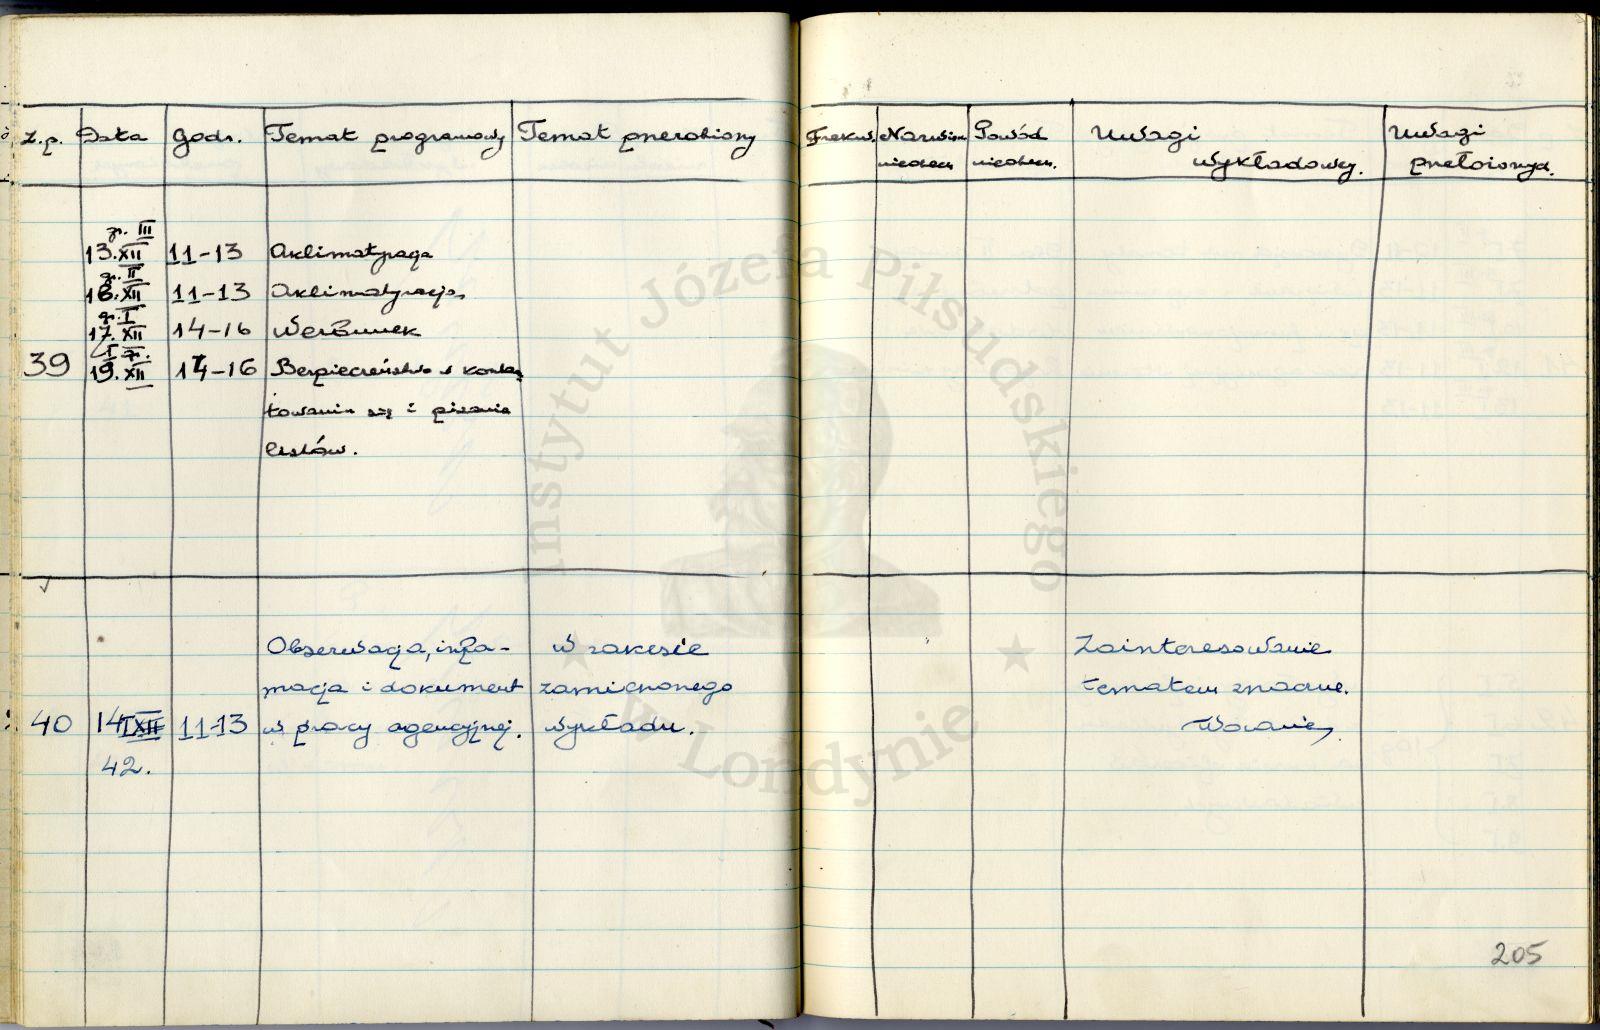 L.p. Data Godz. Temat programowy Temat przerobiony Frekw. Nazwisk. Powód Uwagi Uwagi
nieobecn. nieobecn. wykładowcy. przełożonych.
gr. III
13.XII 11-13 Aklimatyzacja
gr. II
16.XII 11-13 Aklimatyzacja
gr. I
17.XII 14-16 Werbunek
I gr.
39 19.XII 14-16 Bezpieczeństwo w kontak
towaniu się i pisania
listów.
Obserwacja, infor- W zakresie Zainteresowanie
macja i dokument zamienionego tematem znaczne.
40 14 XII 11-13 w pracy agencyjnej. wykładu.
42.
205
Instytut Józefa Piłsudskiego
w Londynie